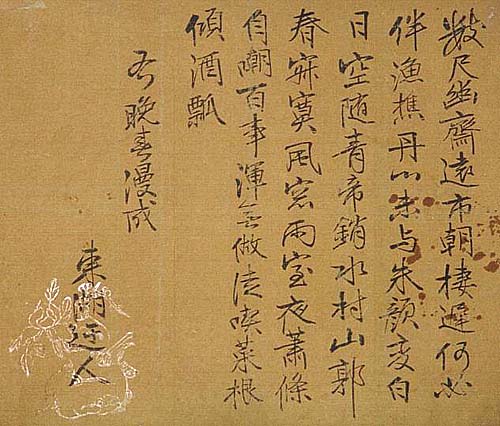 數尺幽齋遠市朝棲遲何必
伴漁樵丹心未与朱顔変白
日空随青帝銷水村山郭
春寂寞風窓雨室夜蕭條
自嘲百事渾無做徒喫菜根
傾酒瓢
右晩春漫成
東人